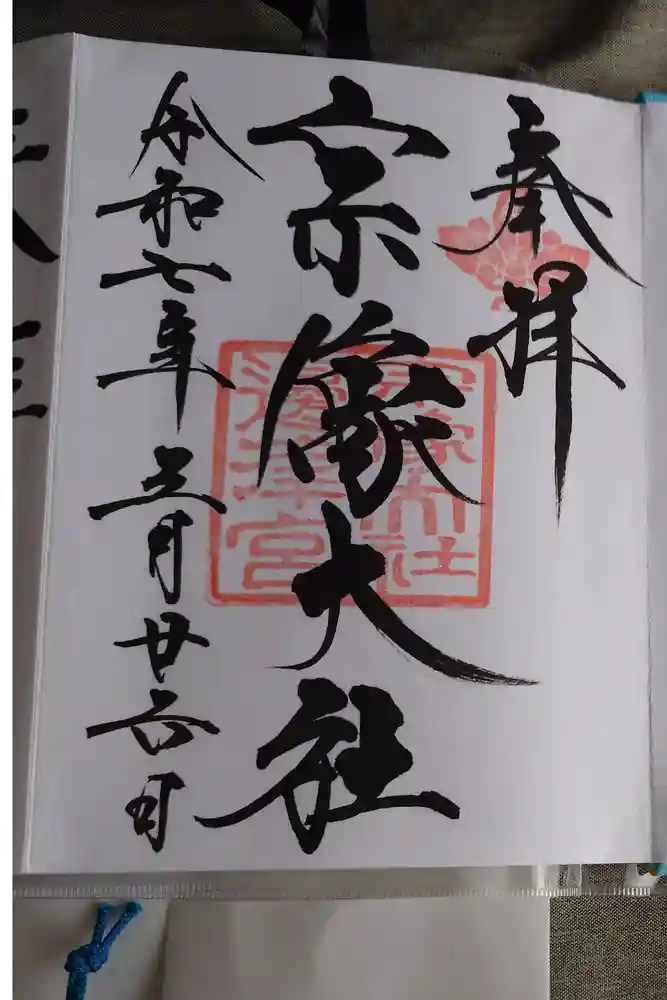 奉拝
宗像大社
宗像大社
邊津宮
令和七年三月廿六日